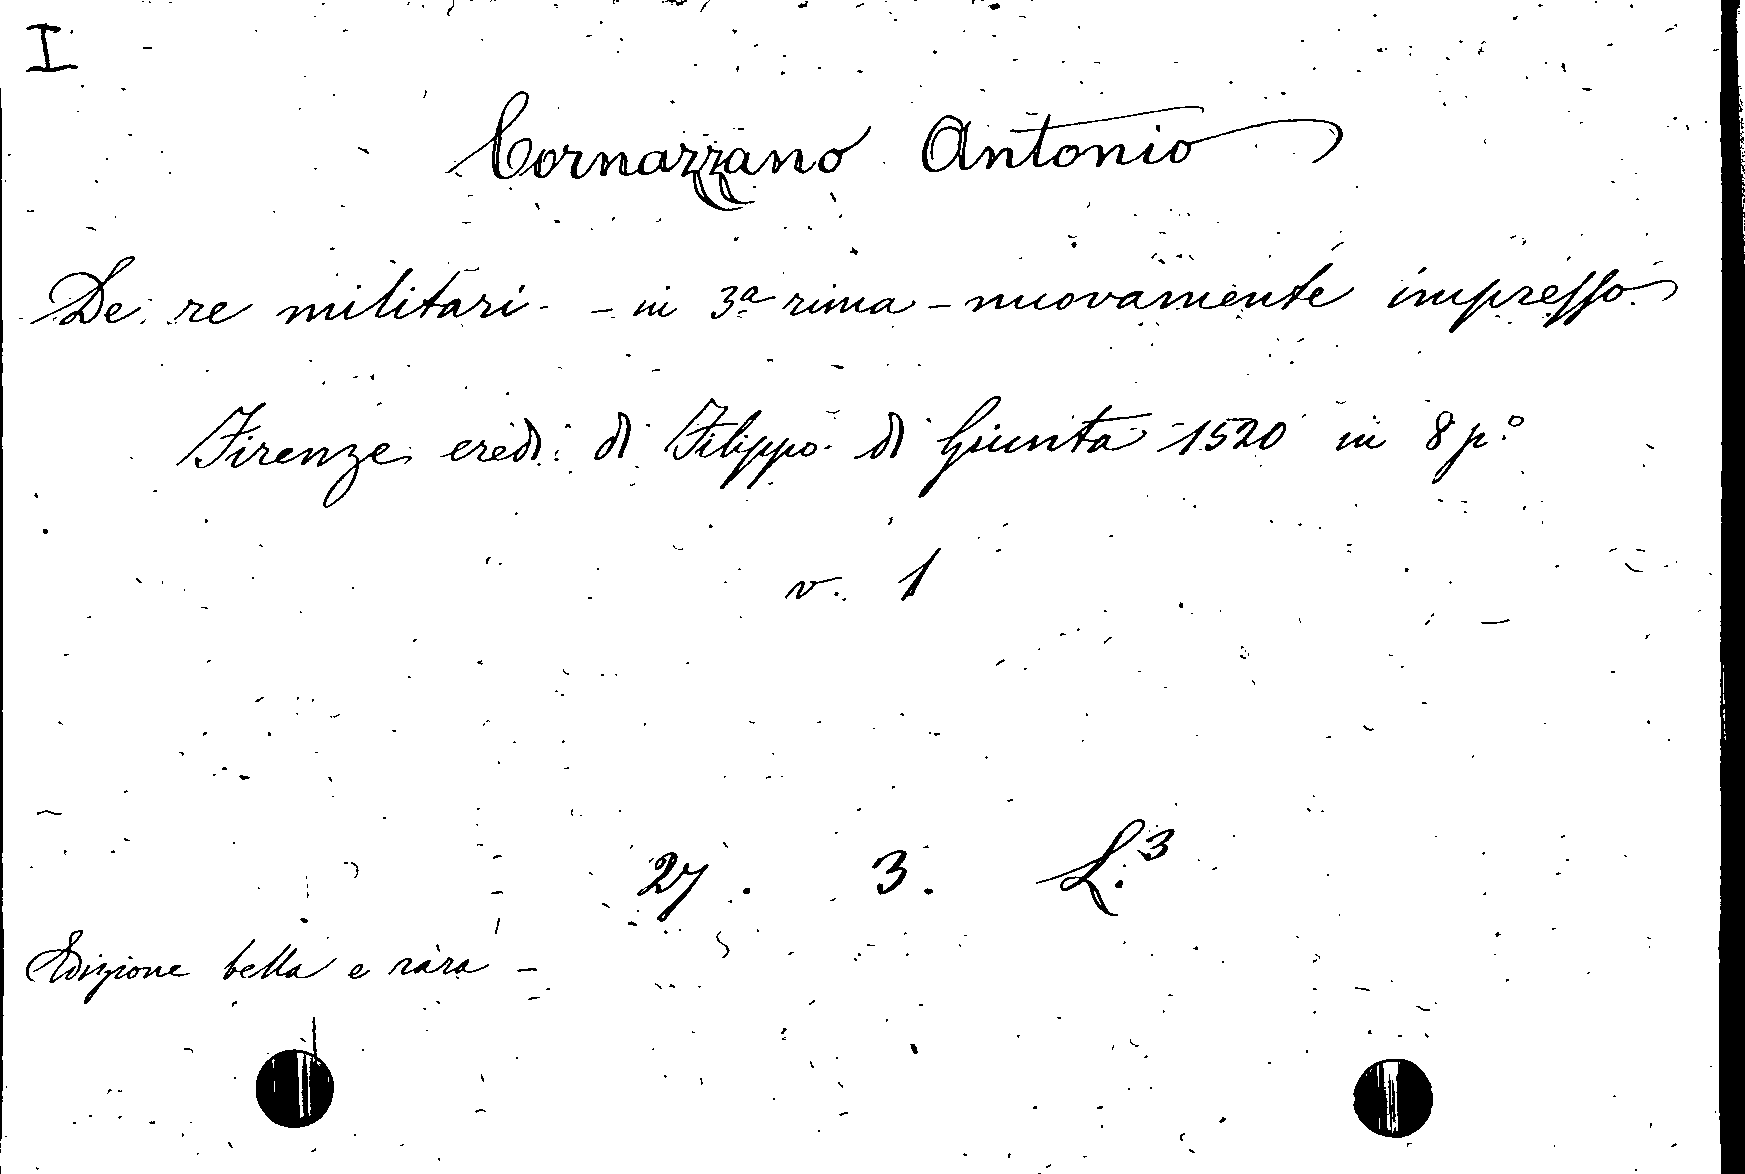 I
Cornazzano Antonio
De re militari - in 3ª rima - nuovamente impresso
Firenze eredi di Filippo di Giunta 1520 in 8 p.º
v. 1
27. 3. L.³
Edizione bella e rara -